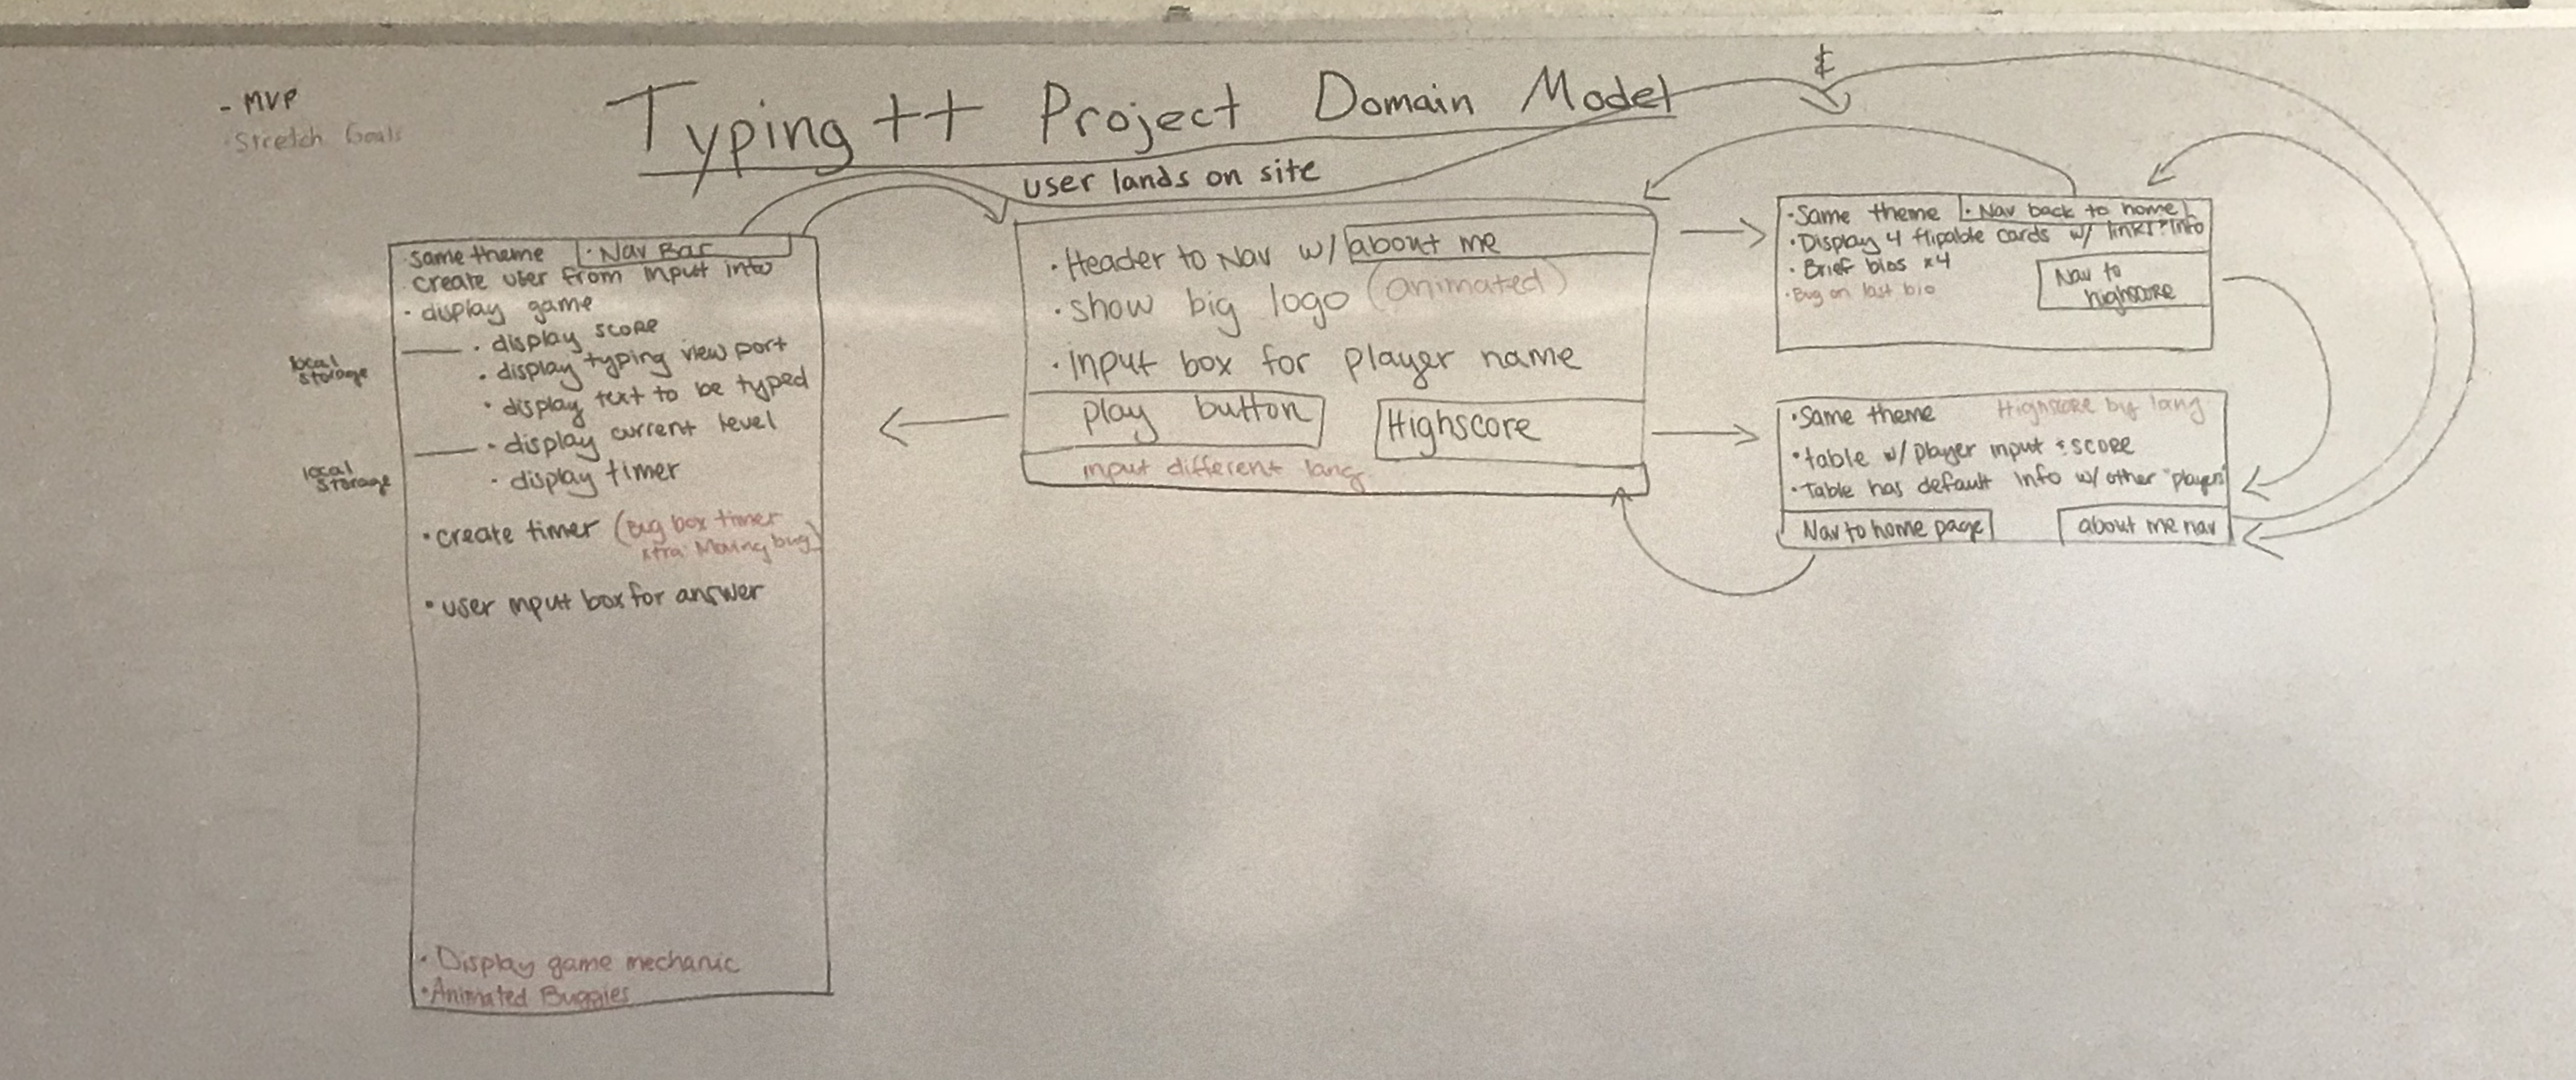 - MVP
- Stretch Goals
Typing ++ Project Domain Model
&
user lands on site
same theme · Nav Bar
create user from input into
· display game
· display score
local storage
· display typing view port
· display text to be typed
· display current level
local storage
· display timer
· create timer (Bug box timer
xtra: Moving bug)
· user input box for answer
· Display game mechanic
· Animated Buggies
· Header to Nav w/ about me
· show big logo (animated)
· Input box for player name
play button
Highscore
input different lang.
· Same theme · Nav back to home
· Display 4 flipable cards w/ info
· Brief bios x4
· Bug on last bio
Nav to
highscore
· Same theme Highscore by lang.
· table w/ player input & score
· Table has default info w/ other "players"
Nav to home page
about me nav